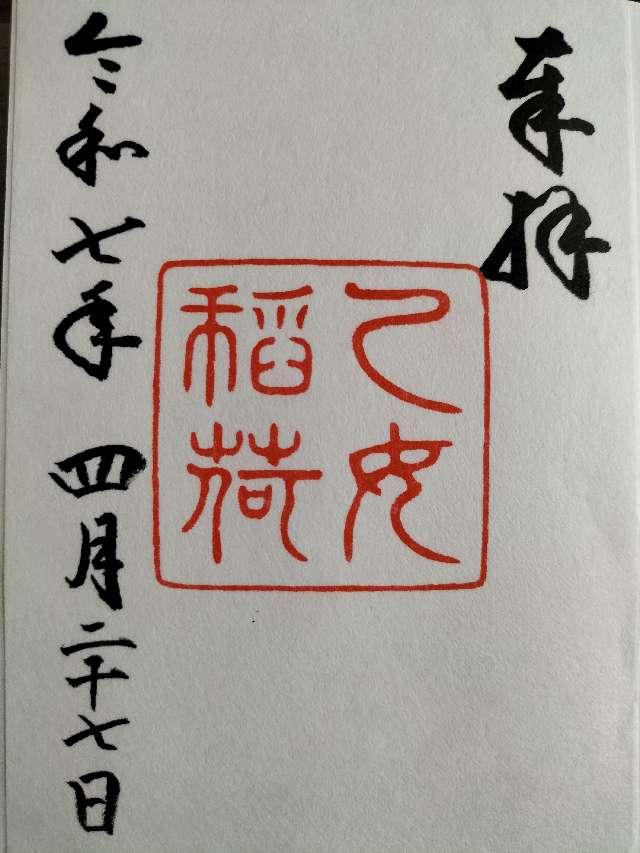 奉拝
乙女
稲荷
令和七年 四月二十七日